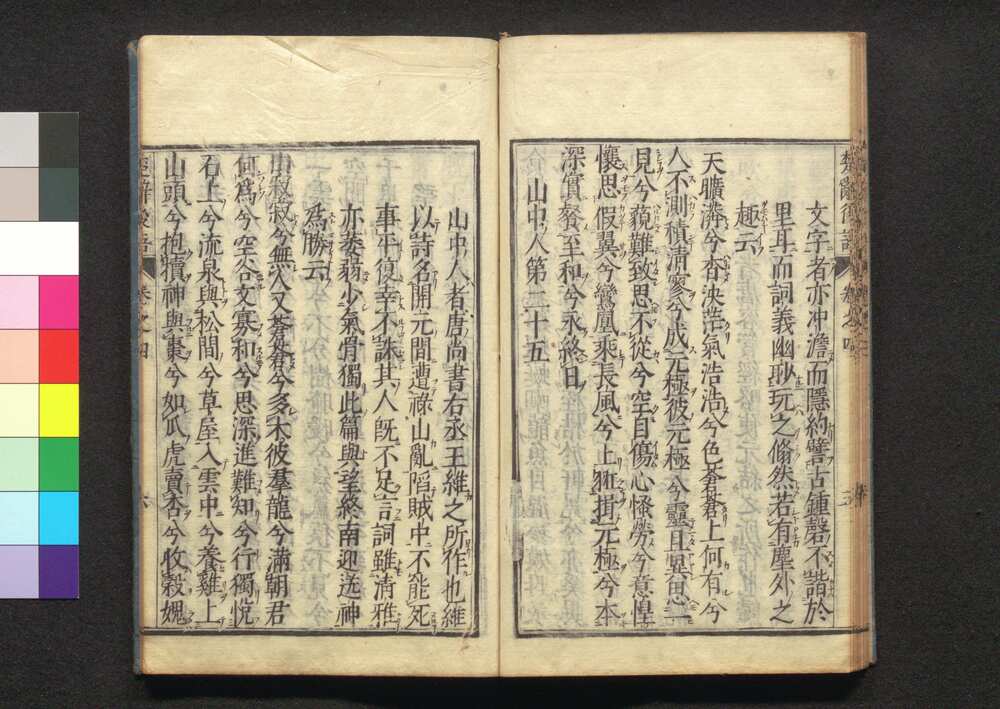 文字者亦冲澹而隱約譬古鍾磬不諧於
里耳而詞義幽玅玩之翛然若有塵外之
趣云
天曠漭兮杳泱茫氣浩浩兮色蒼蒼上何有兮
人不測積清寥兮成元極彼元極兮靈且異思一
見兮藐難致思不從兮空自傷心慅勞兮意惶
懷思假翼兮鸞凰乘長風兮上羾揖元極兮本
深實餐至和兮永終日
山中人第三十五
山中人者唐尚書右丞王維之所作也維
以詩名開元間遭祿山亂陷賊中不能死
事平復幸不誅其人既不足言詞雖清雅
亦萎弱少氣骨獨此篇與望終南迎送神
為勝云
山寂寂兮無人又蒼蒼兮多木彼羣龍兮滿朝君
何爲兮空谷文寡和兮思深進難知兮行獨悅
石上兮流泉與松間兮草屋入雲中兮養雞上
山頭兮抱犢神與棗兮如瓜虎賣杏兮收穀媿
楚辭後語
卷之四
六